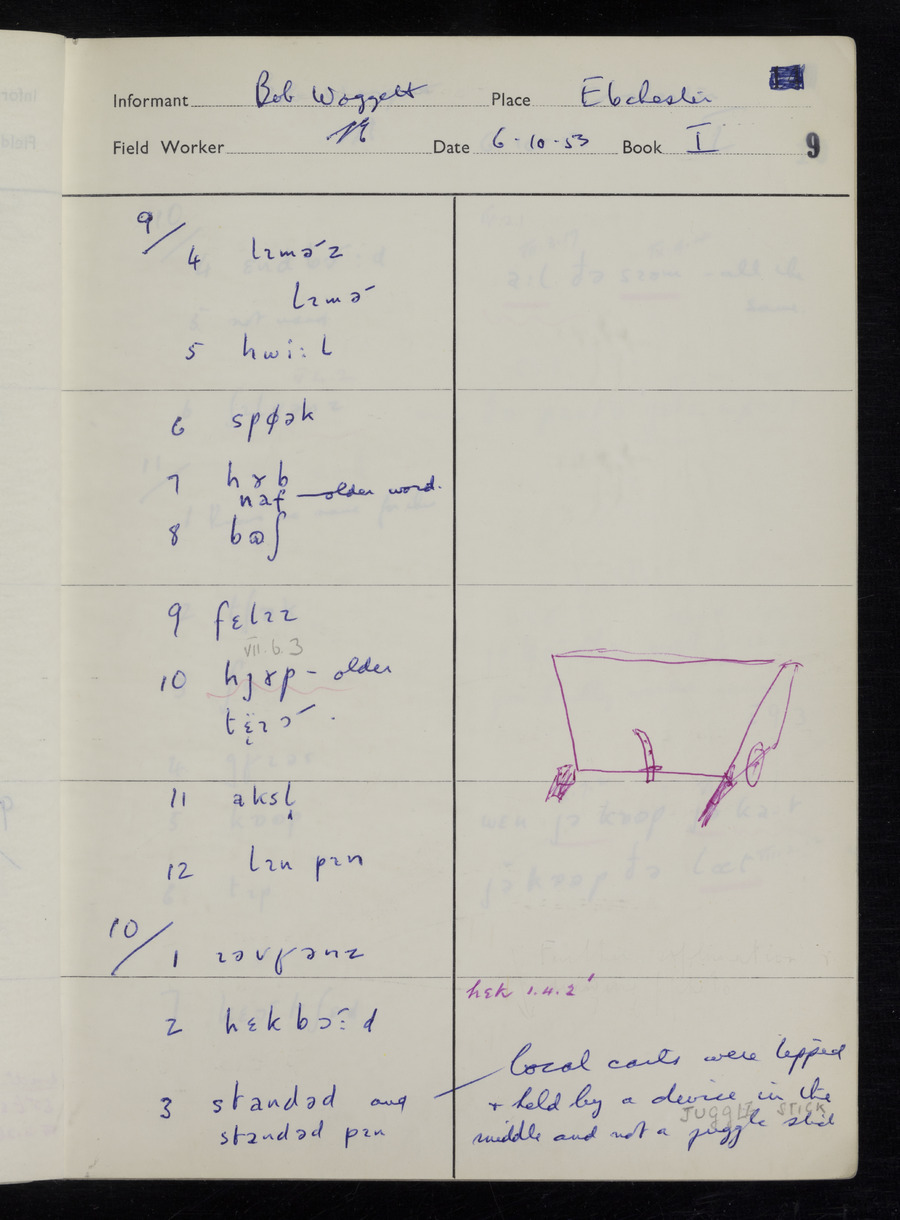 Informant Bob Woggett Place Ebchester
Field Worker Date 6-10-53 Book I 9
9/ 4 lɪmɚz
lɪmɚ
5 hwi:l
6 spøək
7 hɤb
naf — older word.
8 bɷʃ
9 fɛlɪz
VII.6.3
10 hɟɤp - older
11 aksl̩
12 lɪn pɪn
10/ 1
2 hɛk
hɛk 1.4.2'
3 standəd and
standəd pɪn
local carts were tipped
+ held by a device in the
JUGGLE STICK
middle and not a juggle stick